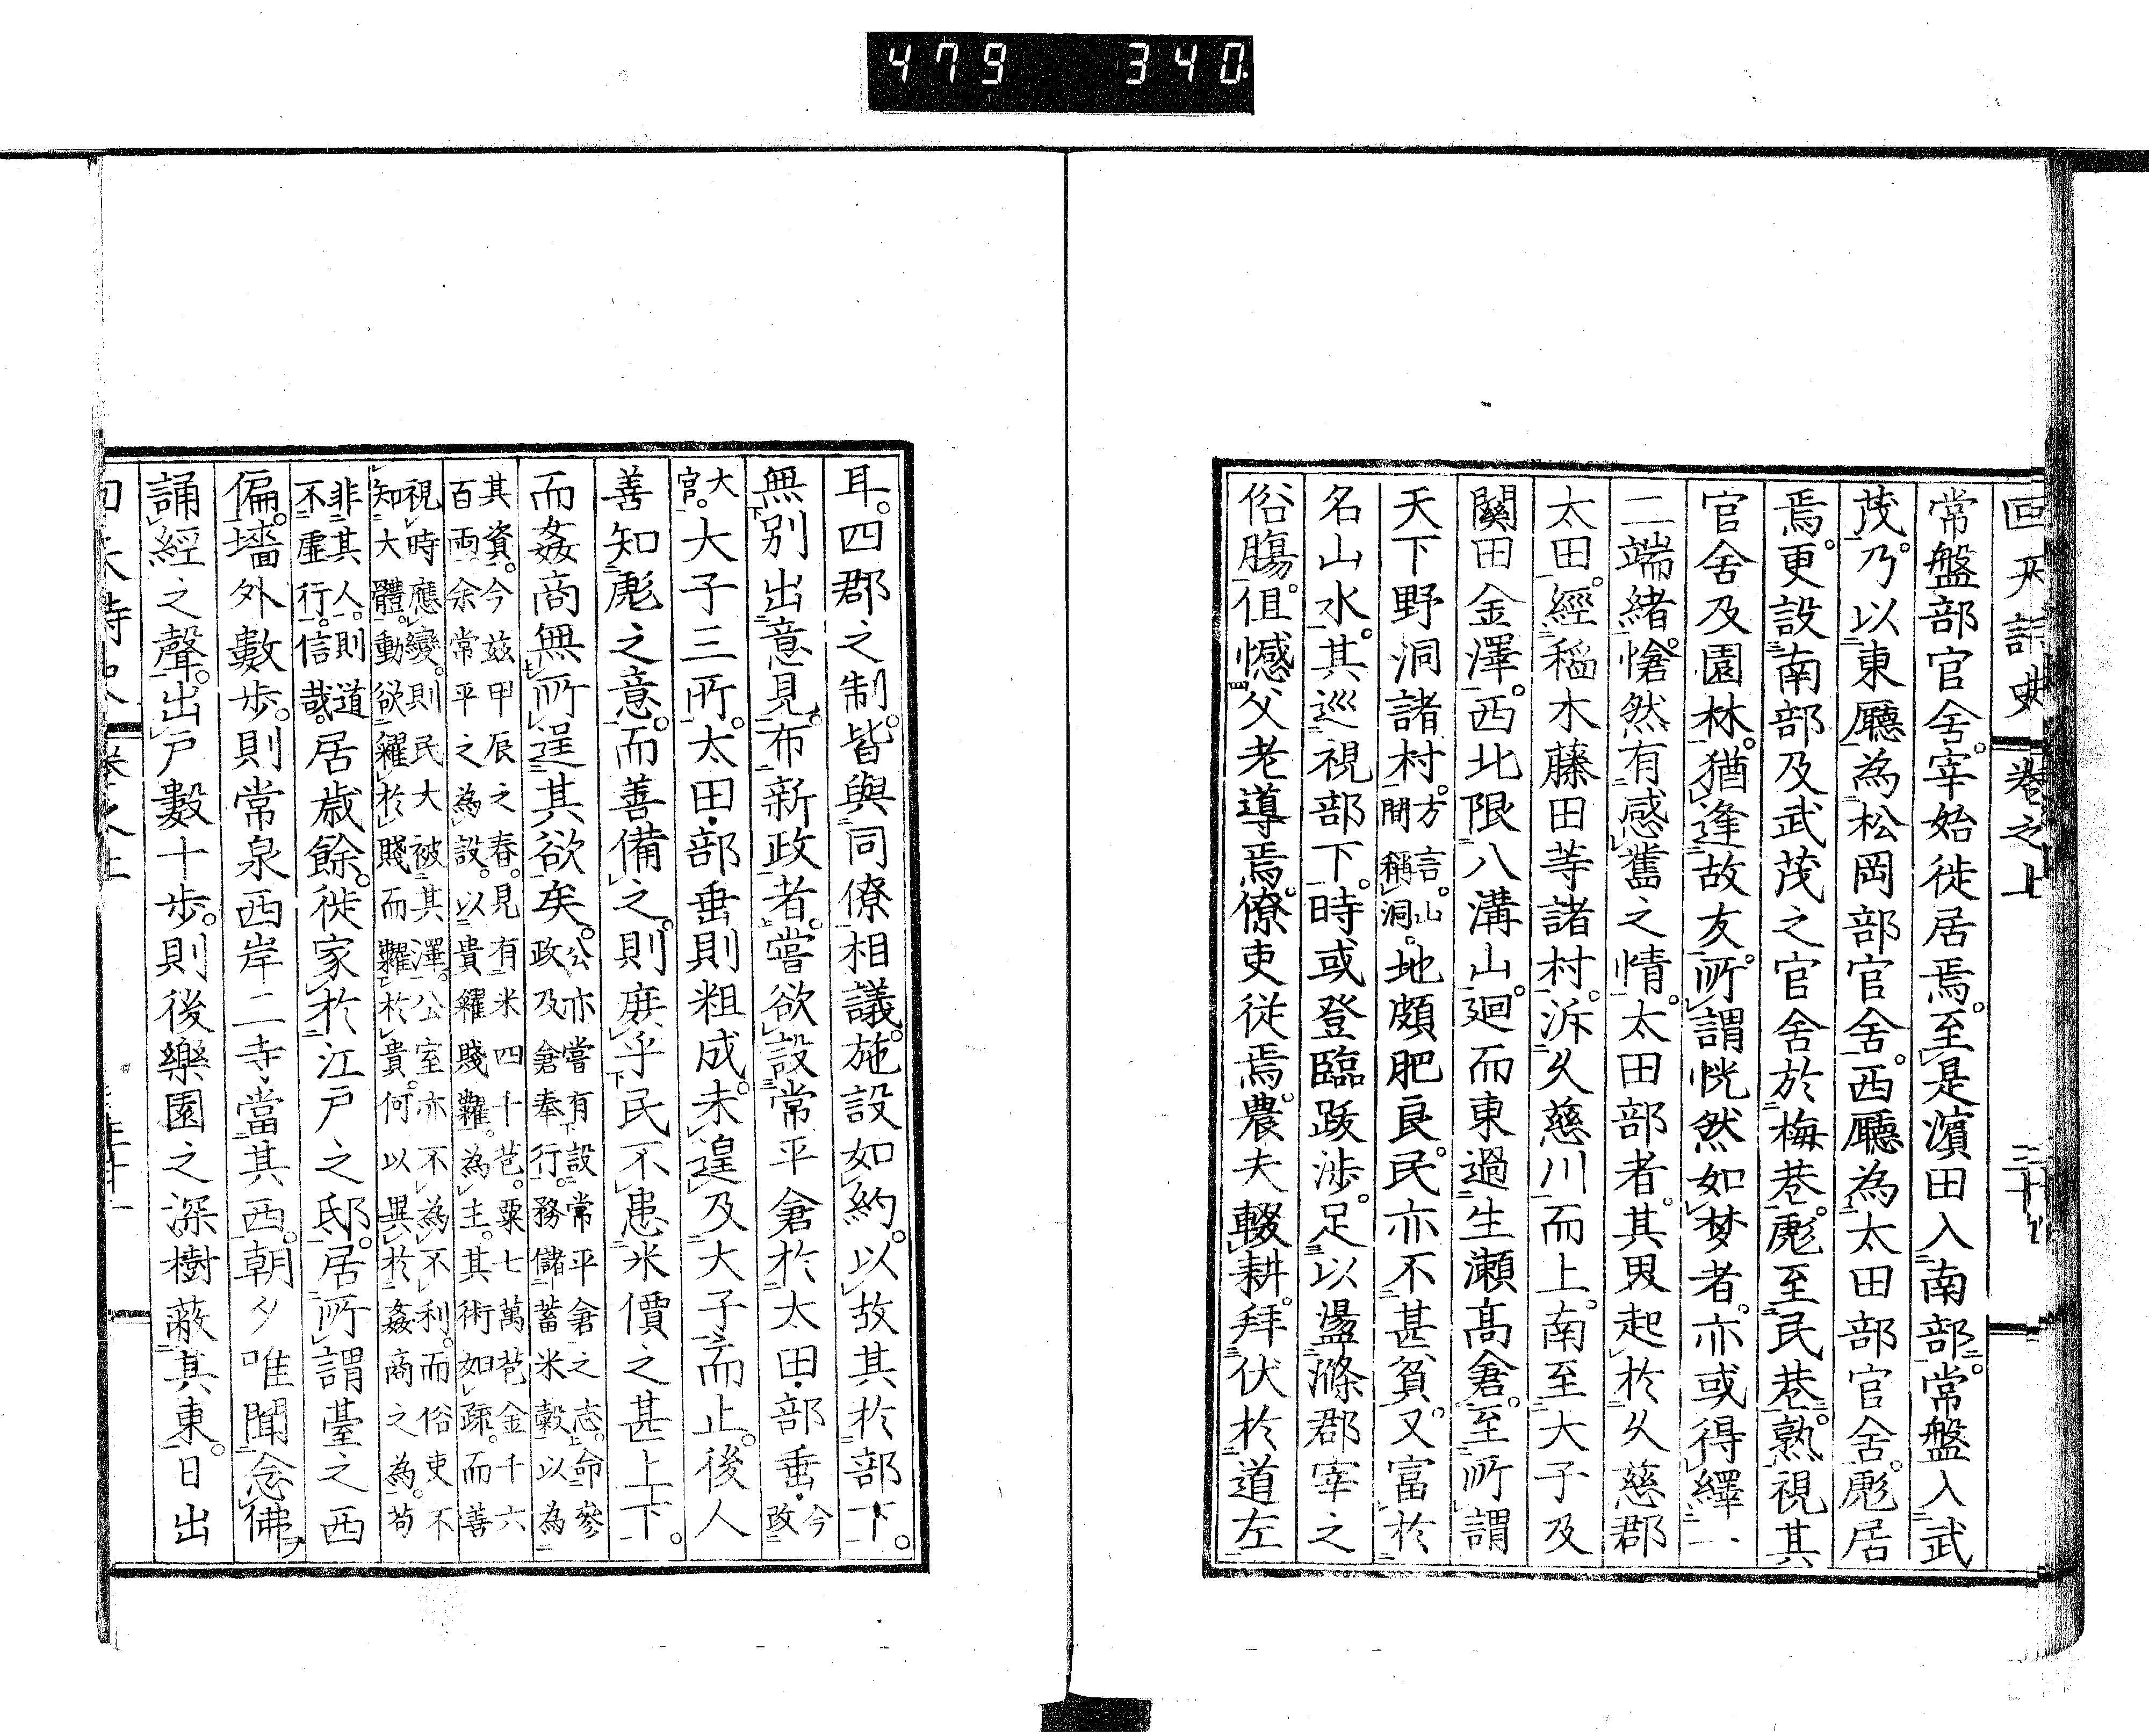 479 340
回天詩史 卷之上 三十
常盤部官舍。宰始徙居焉。至是濱田入南部。常盤入武
茂。乃以東廳為松岡部官舍。西廳為太田部官舍。彪居
焉。更設南部及武茂之官舍於梅巷。彪至民巷。熟視其
官舍及園林。猶逢故友。所謂恍然如夢者。亦或得繹一
二端緒。愴然有感舊之情。太田部者。其界起於久慈郡
太田。經稲木藤田等諸村。泝久慈川而上。南至大子及
關田金澤。西北限八溝山。廻而東過生瀬高倉。至所謂
天下野洞諸村。方言。山間稱洞。地頗肥良。民亦不甚貧。又富於
名山水。其巡視部下。時或登臨跋渉。足以盪滌郡宰之
俗膓。但憾父老導焉。僚吏従焉。農夫輟耕。拜伏於道左
耳。四郡之制。皆與同僚相議。施設如約。以故其於部下。
無別出意見。布新政者。嘗欲設常平倉於大田部垂今改
大官。大子三所。太田部垂則粗成。未遑及大子而止。後人
善知彪之意。而善備之。則庶乎民不患米價之甚上下。
而姦商無所逞其欲矣。公亦嘗有設常平倉之志。命參政及倉奉行。務儲蓄米穀以為
其資。今茲甲辰之春。見有米四十苞。粟七萬苞金千六百両余常平之為設。以貴糴賤糶。為主。其術如疏。而善
視時應變。則民大被其澤。公室亦不為不利。而俗吏不知大體。動欲糴於賤而糶於貴。何以異於姦商之為。苟
非其人。則道不虛行。信哉。居歳餘。徙家於江戸之邸。居所謂臺之西
偏。墻外數歩。則常泉西岸二寺當其西。朝夕唯聞念佛
誦經之聲。出戸數十歩。則後樂園之深樹蔽其東。日出